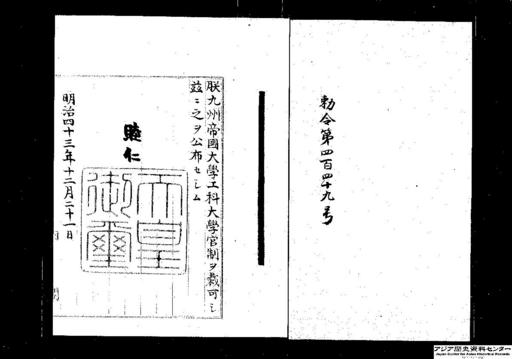 勅令第四百四十九号
朕九州帝國大學工科大學官制ヲ裁可シ
茲ニ之ヲ公布セシム
睦仁
天皇
御璽
明治四十三年十二月二十一日
アジア歴史資料センター
Japan Center for Asian Historical Records